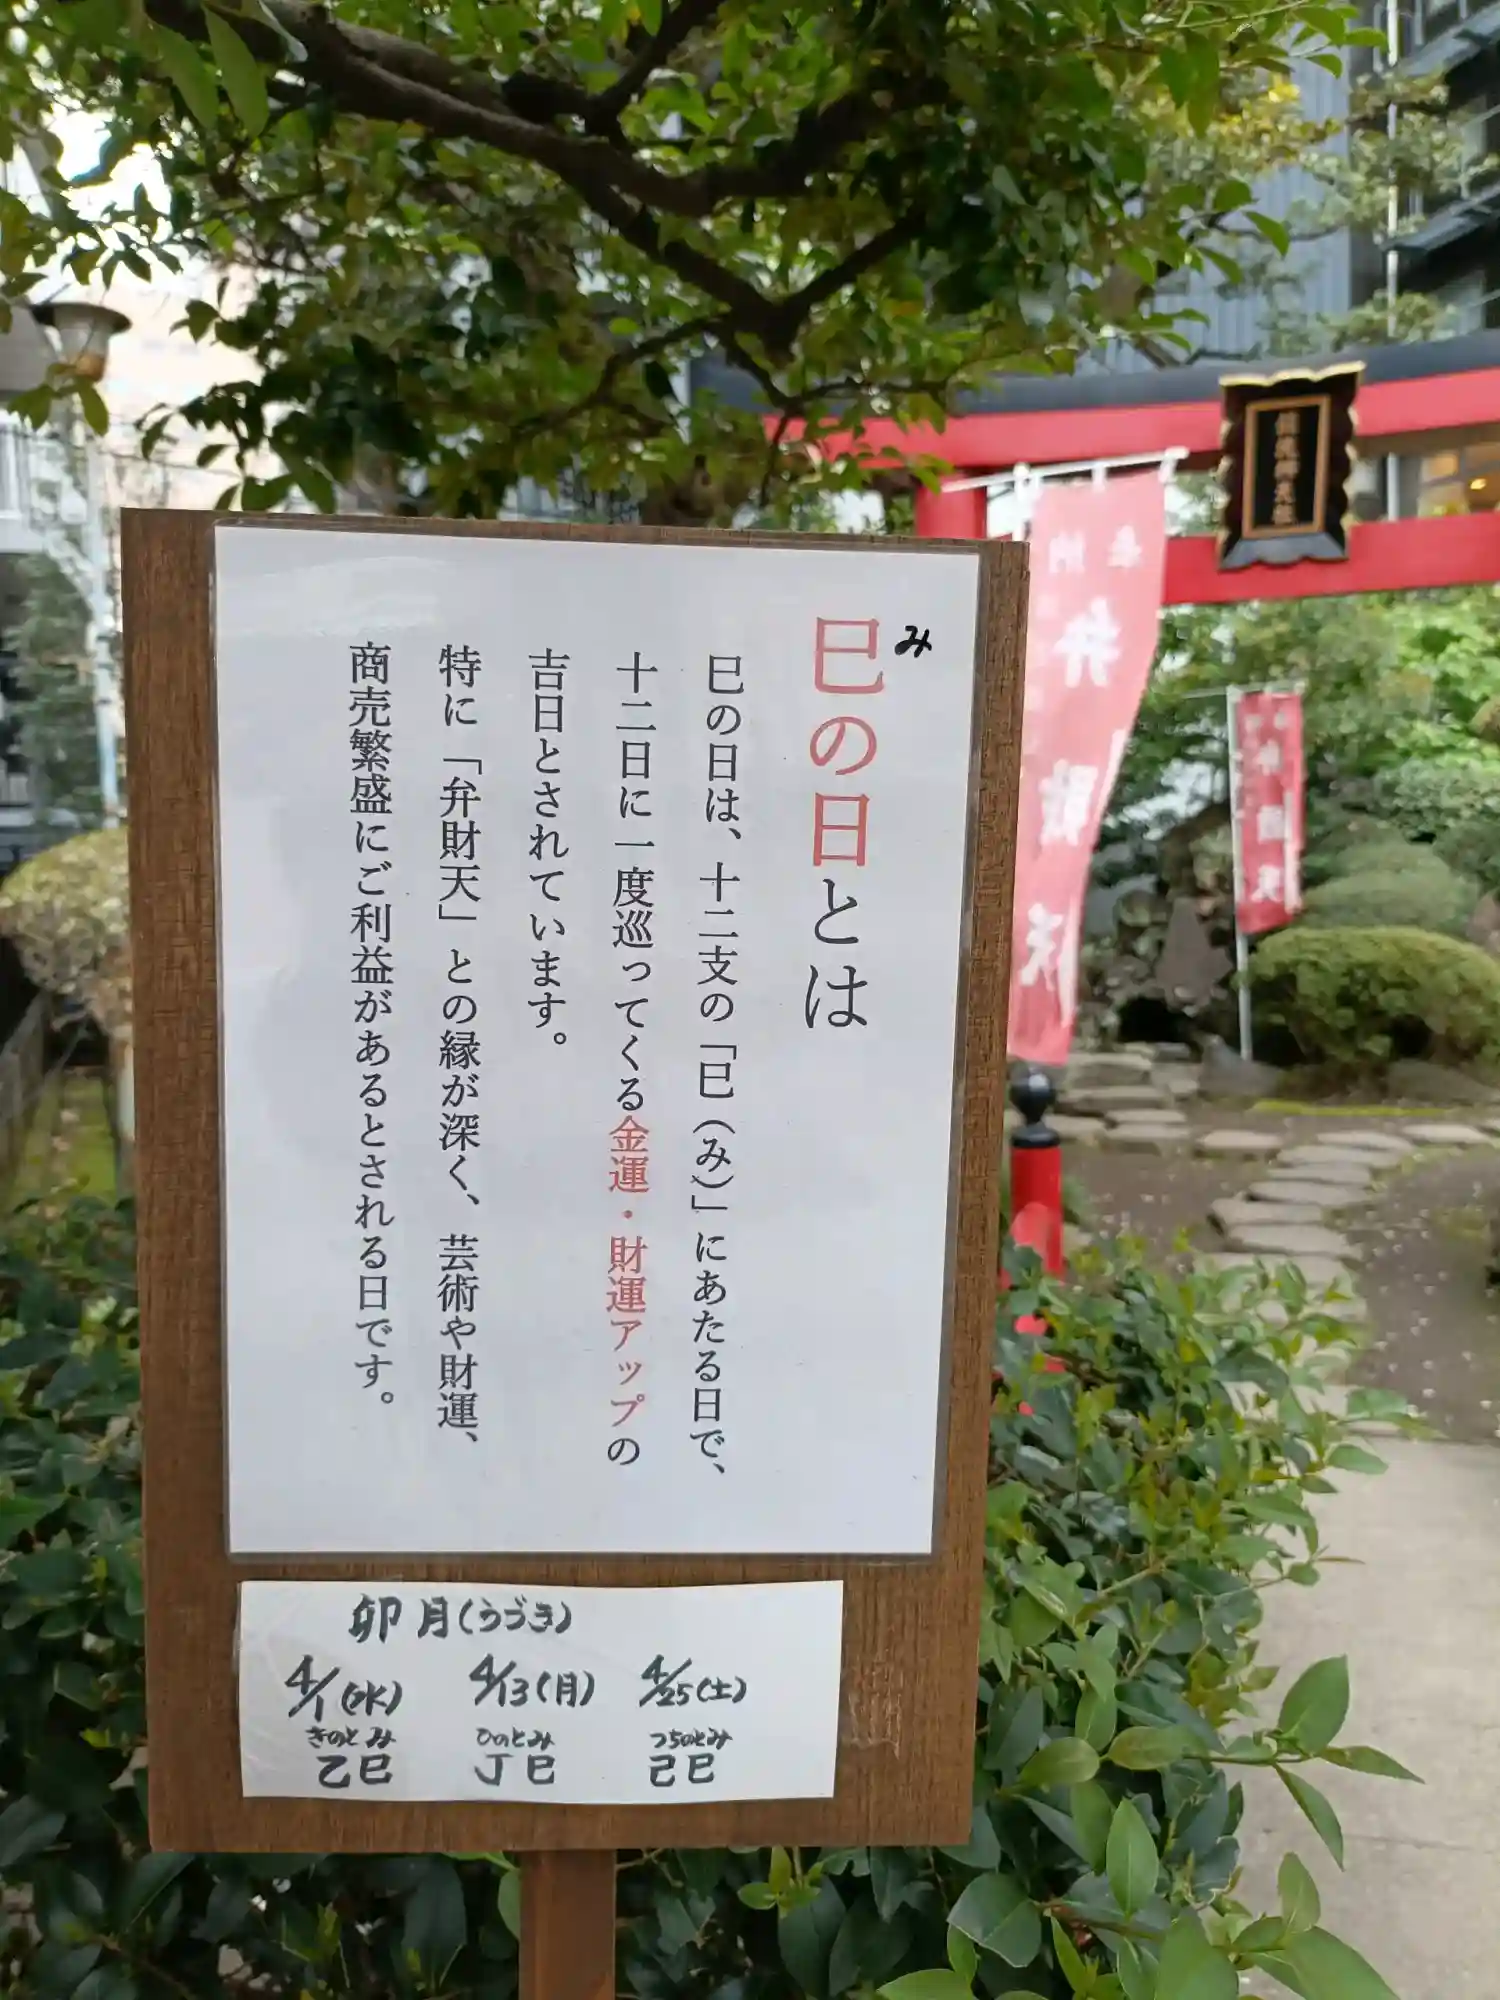 巳の日とは
み
巳の日は、十二支の「巳（み）」にあたる日で、
十二日に一度巡ってくる金運・財運アップの
吉日とされています。
特に「弁財天」との縁が深く、芸術や財運、
商売繁盛にご利益があるとされる日です。
卯月(うづき)
4/1(水) 4/13(月) 4/25(土)
きのとみ ひのとみ つちのとみ
乙巳 丁巳 己巳
奉納